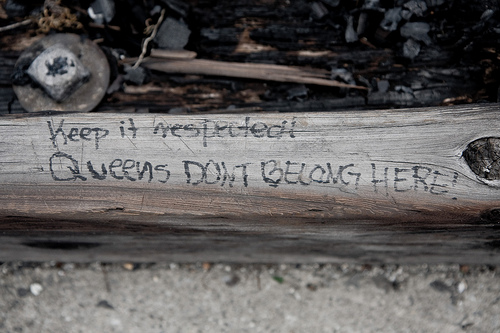 Keep it respected!
Queens DONT BELONG HERE!